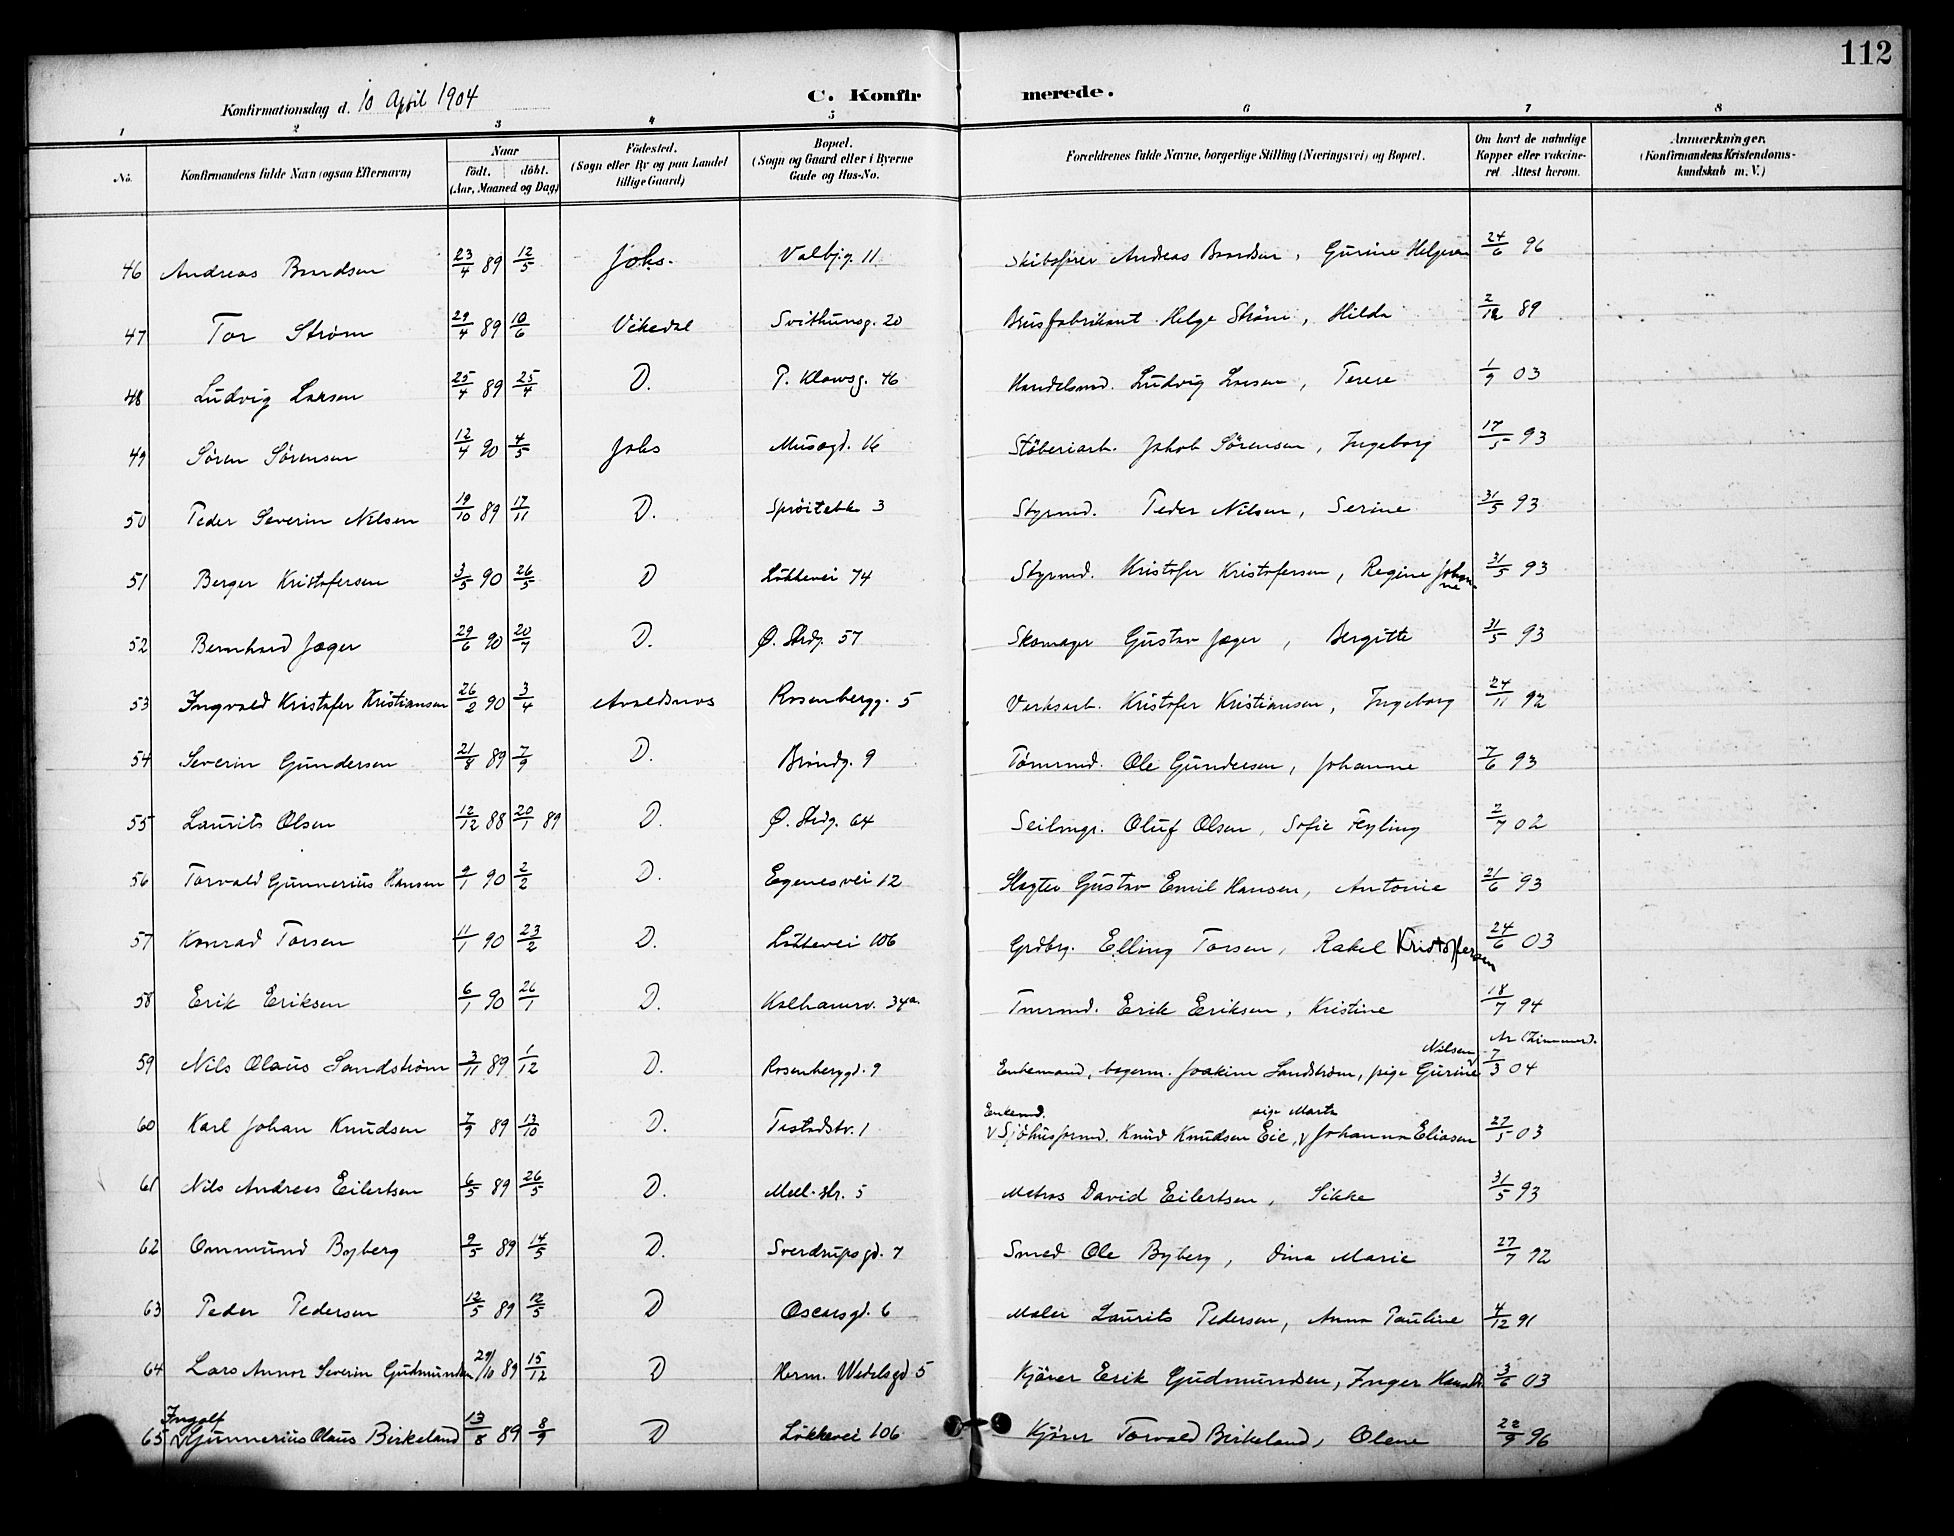 112
Konfirmationsdag d. 10 April 1904
C. Konfirmerede.
1 2 3 4 5 6 7 8
No. | Konfirmandens fulde Navn (ogsaa Efternavn) | Naar födt. döbt. (Aar, Maaned og Dag) | Födested. (Sogn eller By og paa Landet tillige Gaard) | Bopæl. (Sogn og Gaard eller i Byerne Gade og Hus-No.) | Forældrenes fulde Navne, borgerlige Stilling (Næringsvei) og Bopæl. | Om havt de naturlige Kopper eller vakcineret Attest herom. | Anmærkninger. (Konfirmandens Kristendomskundskab m. V.)
46 Andreas Brndsen 23/4 89 12/5 Johs. Valbjg. 11. Skibsfører Andreas Brandsen, Gurine Helgesen 24/6 96
47 Tor Strøm 29/4 89 10/6 Vikedal Svithunsg. 20 Brusfabrikant Helge Strøm, Hilda 2/12 89
48 Ludvig Larsen 25/4 89 25/4 D. P. Klowsg. 46 Handelsmd. Ludvig Larsen, Terese 1/9 03
49 Søren Sørensen 12/4 90 4/5 Johs Musegd. 16 Stöberiarb. Jakob Sörensen, Ingeborg 17/5 93
50 Peder Severin Nilsen 19/10 89 17/11 D. Spröitebk 3 Styrmd. Peder Nilsen, Serine 31/5 93
51 Berger Kristofersen 3/5 90 26/5 D Lökkevei 74 Styrmd. Kristofer Kristofersen, Regine Johanne 31/5 93
52 Bernhard Jæger 29/6 90 20/7 D. Ø. Strdg. 57 Skomager Gustav Jæger, Bergitte 31/5 93
53 Ingvald Kristofer Kristiansen 26/2 90 3/4 Avaldsnes Rosenbergg. 5 Verksarb. Kristofer Kristiansen, Ingeborg 24/11 92
54 Severin Gundersen 21/8 89 7/9 D. Bröndg. 9 Tömrmd. Ole Gundersen, Johanne 7/6 93
55 Laurits Olsen 12/12 88 20/1 89 D. Ø. Strdg. 64 Seilmgr. Oluf Olsen, Sofie Feyling 2/7 02
56 Torvald Gunnerius Hansen 9/1 90 2/2 D. Egenesvei 12 Slagter Gustav Emil Hansen, Antonie 21/6 93
57 Konrad Torsen 11/1 90 23/2 D. Lökkevei 106 Grdbrg. Elling Torsen, Rakel Kristoffersen 24/6 03
58 Erik Eriksen 6/1 90 26/1 D. Kalhamrv. 34a. Tmrmd. Erik Eriksen, Kristine 18/7 94
59 Nils Olaus Sandstrøm 3/11 89 1/12 D. Rosenberggd. 9 Enkemand, bagerm. Joakim Sandstrøm, pige Gurine Nilsen 7/3 04
60 Karl Johan Knudsen 7/9 89 13/10 D. Tastadstr. 1 Enkemd. Sjöhusformd. Knud Knudsen Eie, pige Marta Johanna Eliasen 27/5 03
61 Nils Andreas Eilertsen 6/5 89 26/5 D. Mell. str. 5 Matros David Eilertsen, Sikke 31/5 93
62 Ommund Byberg 9/5 89 14/5 D. Sverdrupsgd. 7 Smed Ole Byberg, Dina Marie 27/7 92
63 Peder Pedersen 12/5 89 12/5 D Oscarsgd. 6 Maler Laurits Pedersen, Anna Pauline 4/12 91
64 Lars Annor Severin Gudmundsen 29/10 89 15/12 D Herm. Wedelsgd 5 Kjörer Erik Gudmundsen, Inger 3/6 03
65 Ingolf Gunnerius Olaus Birkeland 13/8 89 8/9 D Lökkevei 106 Kjörer Torvald Birkeland, Olene 22/9 96